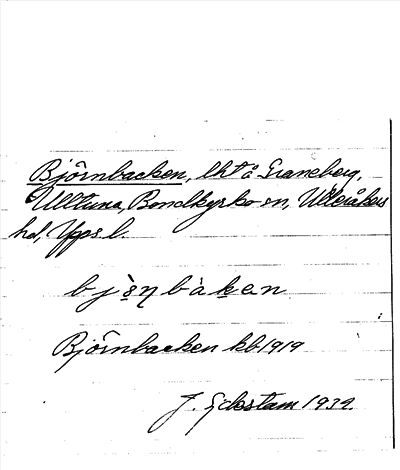 Björnbacken, lht å Graneberg,
Ulltuna, Bondkyrko sn, Ulleråkers
hd, Upps l.
bjö̀ṇbàḵen
Björnbacken kb 1919
J. Eckstam 1939.